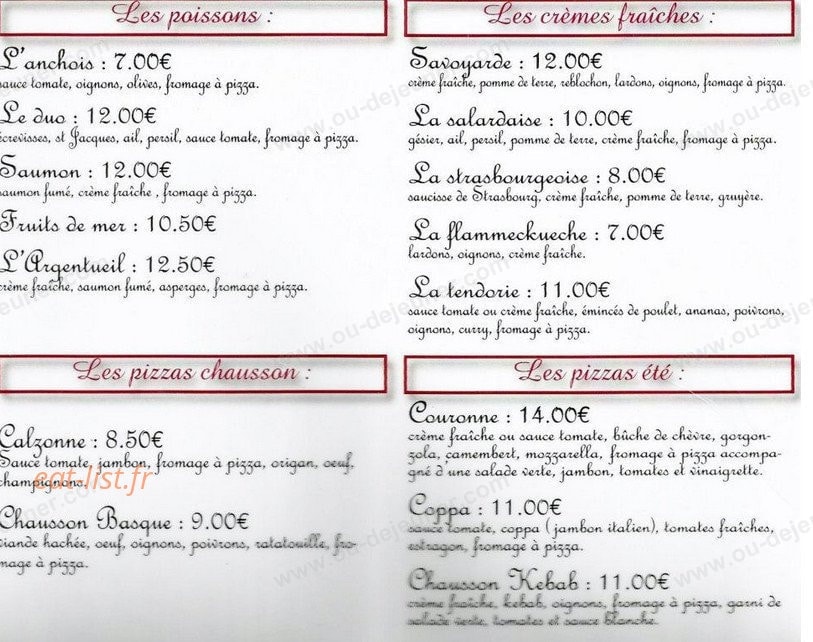 Les poissons :
L'anchois : 7.00€
sauce tomate, oignons, olives, fromage à pizza.
Le duo : 12.00€
écrevisses, st Jacques, ail, persil, sauce tomate, fromage à pizza.
Saumon : 12.00€
saumon fumé, crème fraîche , fromage à pizza.
Fruits de mer : 10.50€
L'Argentueil : 12.50€
crème fraîche, saumon fumé, asperges, fromage à pizza.
Les crèmes fraîches :
Savoyarde : 12.00€
crème fraîche, pomme de terre, reblochon, lardons, oignons, fromage à pizza.
La salardaise : 10.00€
gésier, ail, persil, pomme de terre, crème fraîche, fromage à pizza.
La strasbourgeoise : 8.00€
saucisse de Strasbourg, crème fraîche, pomme de terre, gruyère.
La flammeckueche : 7.00€
lardons, oignons, crème fraîche.
La tendorie : 11.00€
sauce tomate ou crème fraîche, émincés de poulet, ananas, poivrons,
oignons, curry, fromage à pizza.
Les pizzas chausson :
Calzonne : 8.50€
Sauce tomate, jambon, fromage à pizza, origan, oeuf,
champignons.
eat-list.fr
Chausson Basque : 9.00€
viande hachée, oeuf, oignons, poivrons, ratatouille, fro-
mage à pizza.
Les pizzas été :
Couronne : 14.00€
crème fraîche ou sauce tomate, bûche de chèvre, gorgon-
zola, camembert, mozzarella, fromage à pizza accompa-
gné d'une salade verte, jambon, tomates et vinaigrette.
Coppa : 11.00€
sauce tomate, coppa ( jambon italien), tomates fraîches,
estragon, fromage à pizza.
Chausson Kebab : 11.00€
crème fraîche, kebab, oignons, fromage à pizza, garni de
salade verte, tomates et sauce blanche.
www.ou-dejeuner.com